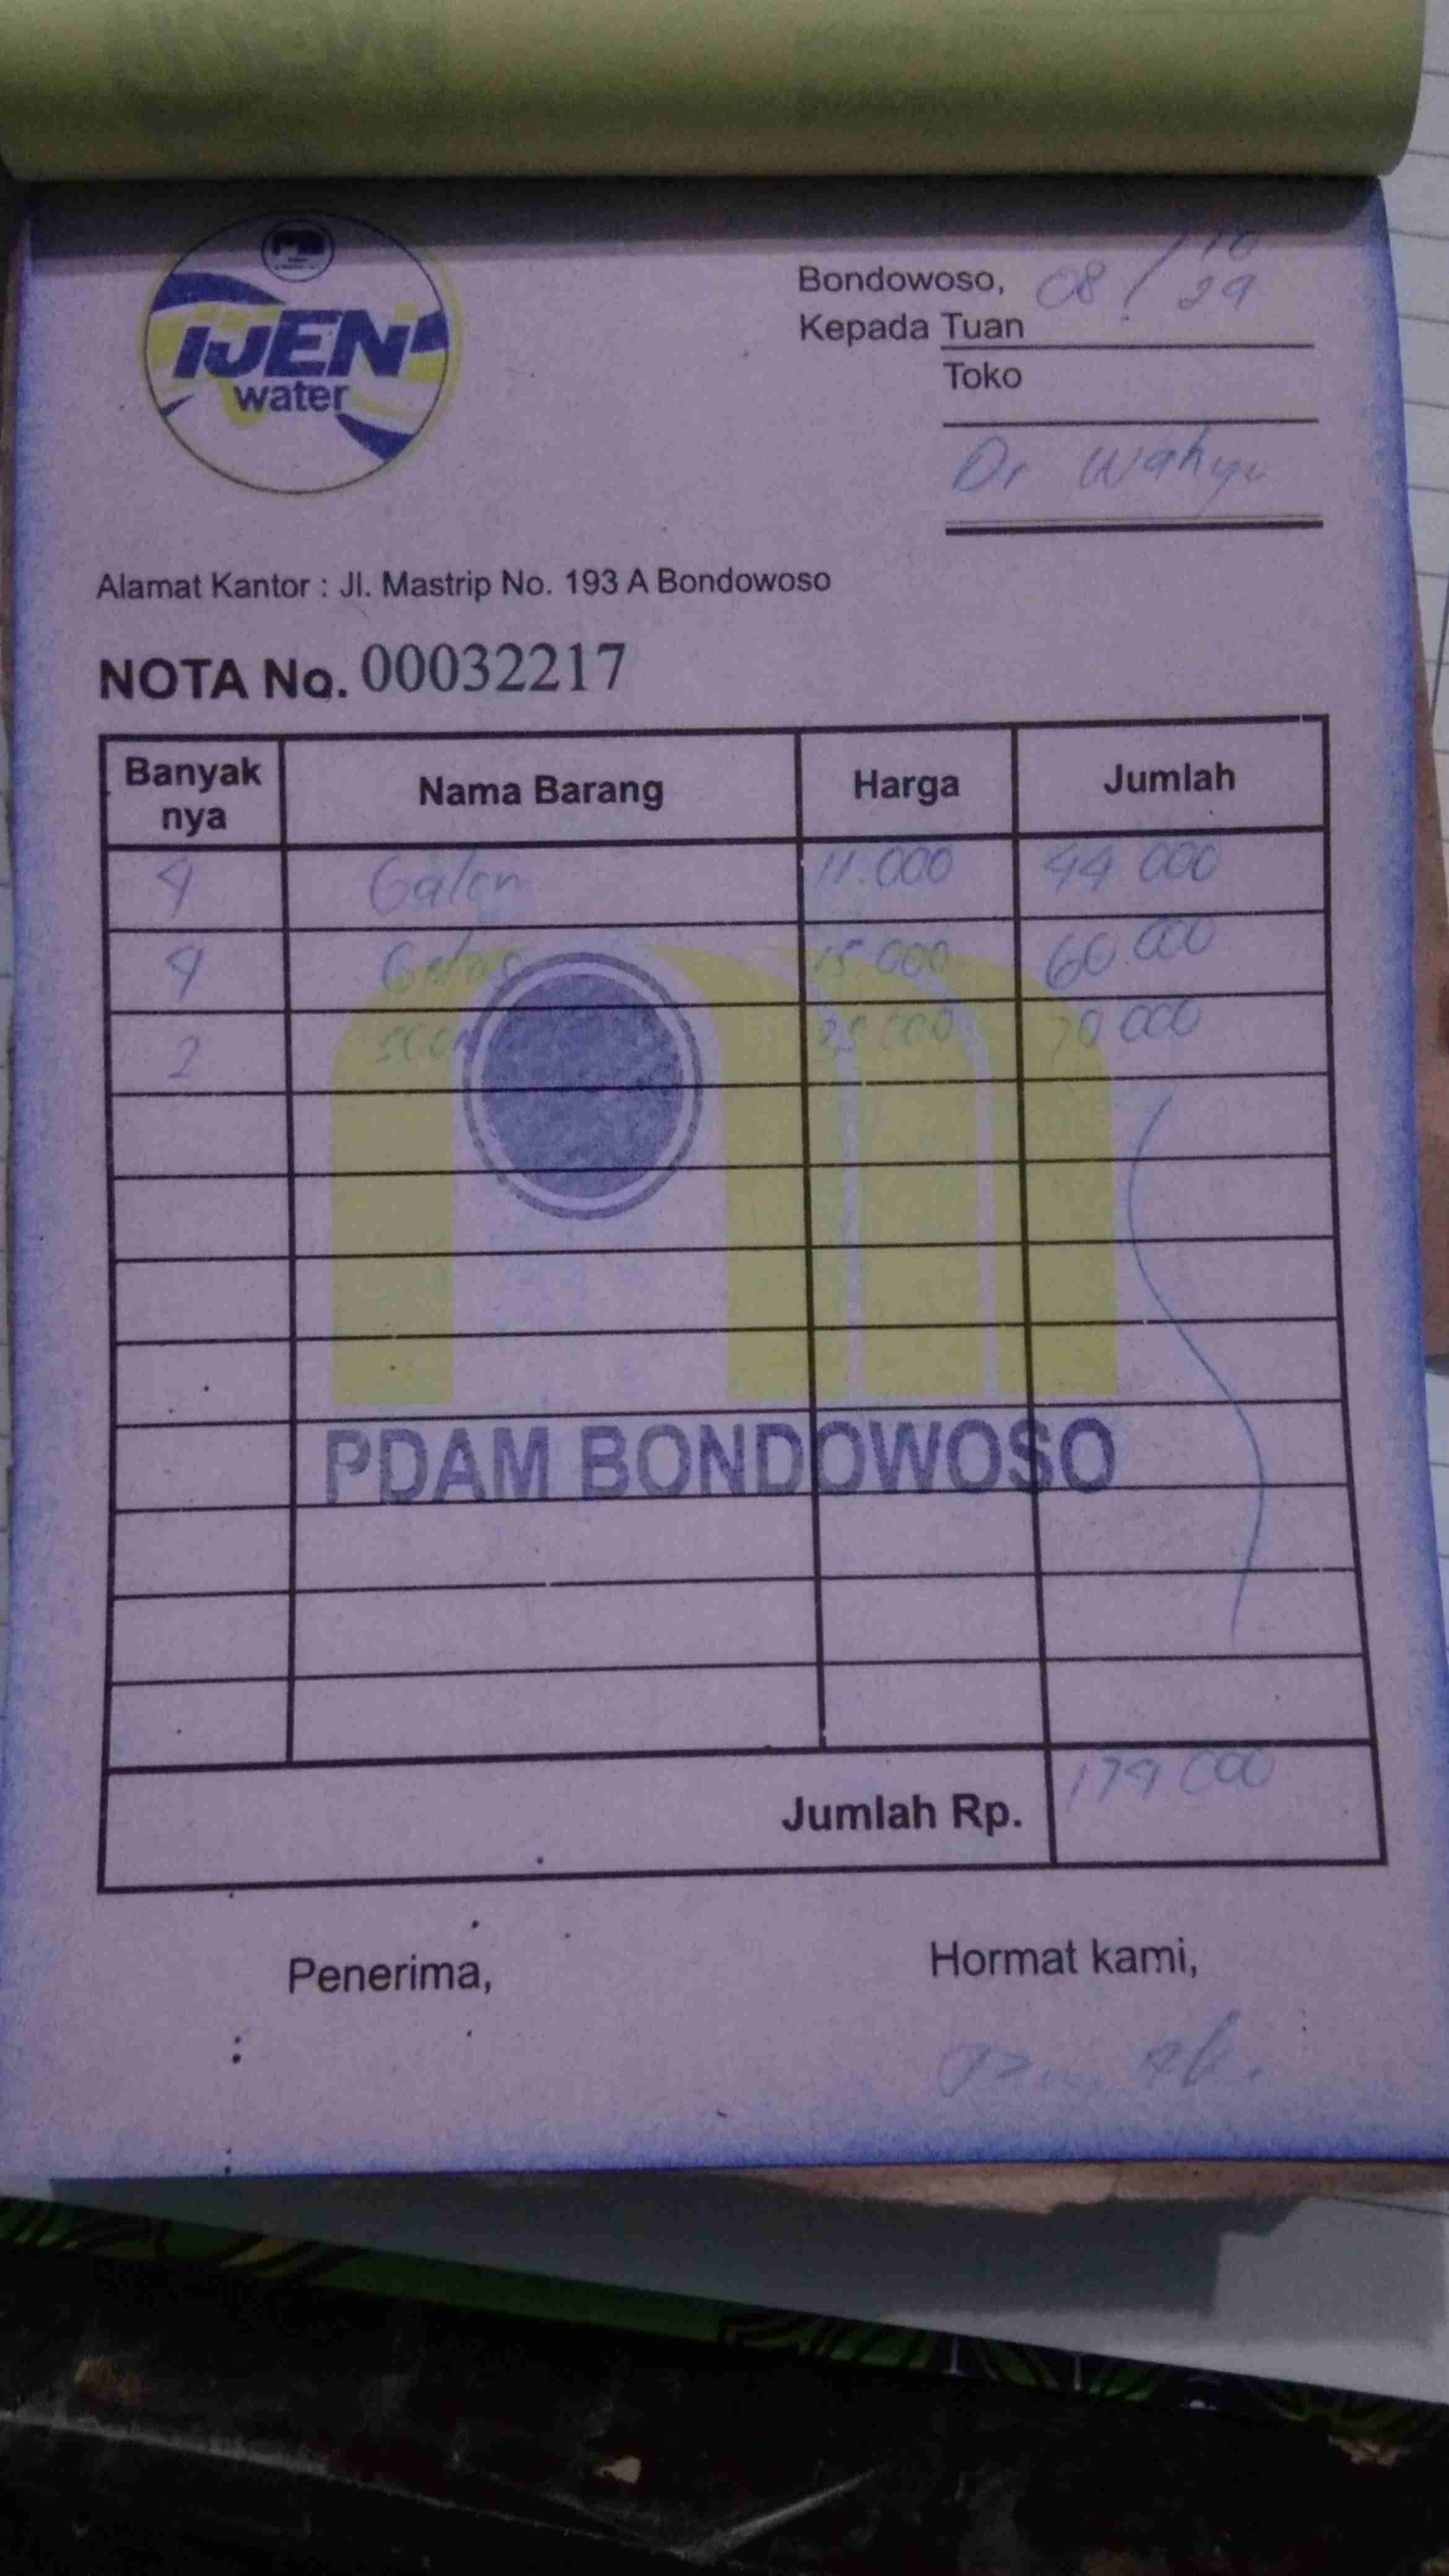 IJEN
water
Bondowoso, 08/10
24
Kepada Tuan
Toko
Dr Wahyu
Alamat Kantor : Jl. Mastrip No. 193 A Bondowoso
NOTA No. 00032217
Banyak nya Nama Barang Harga Jumlah
4 Galon 11.000 44 000
4 Gelas 15 000 60.000
2 35 000 70 000
PDAM BONDOWOSO
Jumlah Rp. 174.000
Penerima, Hormat kami,